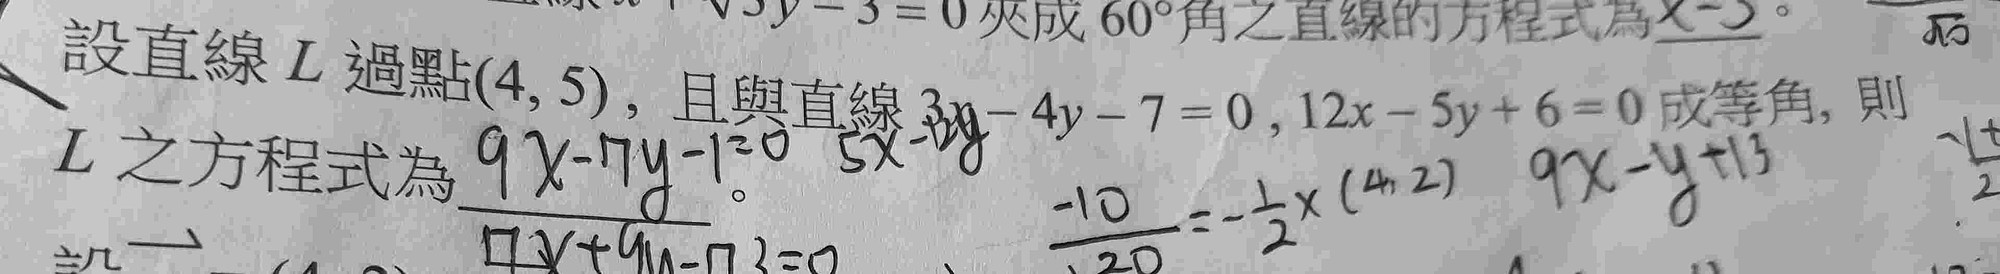 3y - 3 = 0 夾成 60°角之直線的方程式為 x-3。
設直線 L 過點(4, 5), 且與直線 3x - 4y - 7 = 0 , 12x - 5y + 6 = 0 成等角, 則
L 之方程式為 9x-7y-1=0。
5x-12y
-10/20 = -1/2 x (4, 2)
9x-y+13
7x+9y-73=0